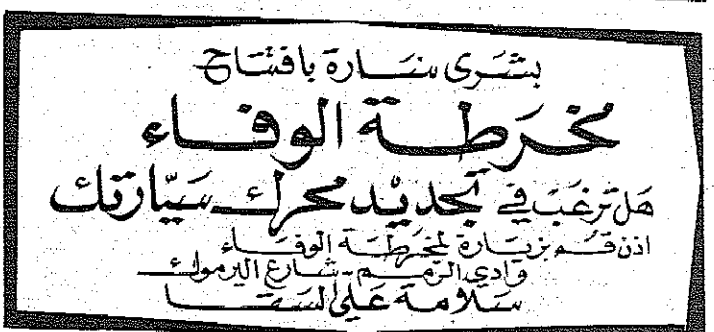 بشرى سارة بافتتاح
مخرطة الوفاء
هل ترغب في تجديد محرك سيارتك
اذن قم بزيارة لمخرطة الوفاء
وادي الرمم - شارع اليرموك
سلامة علي السقا